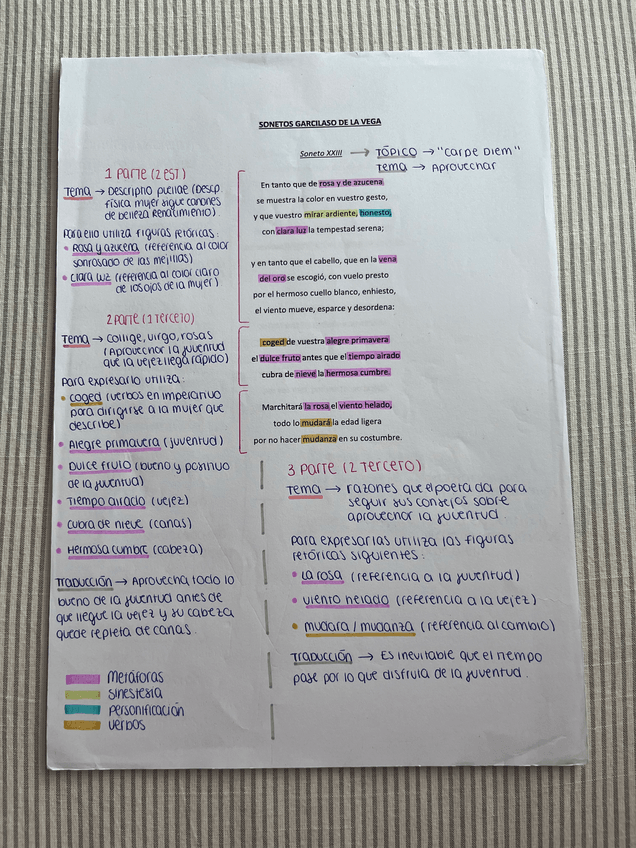 SONETOS GARCILASO DE LA VEGA
Soneto XXIII → TÓPICO → "Carpe Diem"
Tema → Aprovechar
1 PARTE (2 EST)
Tema → Descriptio puellae (Descp.
física mujer sigue canones
de belleza Renacimiento).
Para ello utiliza figuras retóricas:
• Rosa y azucena (referencia al color
sonrosado de las mejillas)
• Clara luz (referencia al color claro
de los ojos de la mujer)
En tanto que de rosa y de azucena
se muestra la color en vuestro gesto,
y que vuestro mirar ardiente, honesto,
con clara luz la tempestad serena;
y en tanto que el cabello, que en la vena
del oro se escogió, con vuelo presto
por el hermoso cuello blanco, enhiesto,
el viento mueve, esparce y desordena:
2 PARTE (1 Terceto)
Tema → Collige, virgo, rosas
(Aprovechar la juventud
que la vejez llega rápido)
Para expresarlo utiliza:
• coged (verbos en imperativo
para dirigirse a la mujer que
describe)
• Alegre primavera (juventud)
• Dulce fruto (bueno y positivo
de la juventud)
• Tiempo airado (vejez)
• Cubra de nieve (canas)
• Hermosa cumbre (cabeza)
Traducción → Aprovecha todo lo
bueno de la juventud antes de
que llegue la vejez y su cabeza
quede repleta de canas.
coged de vuestra alegre primavera
el dulce fruto antes que el tiempo airado
cubra de nieve la hermosa cumbre.
Marchitará la rosa el viento helado,
todo lo mudará la edad ligera
por no hacer mudanza en su costumbre.
3 PARTE (2 Terceto)
Tema → razones que el poeta da para
seguir sus consejos sobre
aprovechar la juventud.
Para expresarlas utiliza las figuras
retóricas siguientes:
• La rosa (referencia a la juventud)
• viento helado (referencia a la vejez)
• mudara / mudanza (referencia al cambio)
Traducción → Es inevitable que el tiempo
pase por lo que disfruta de la juventud.
Metáforas
sinestesia
Personificación
verbos